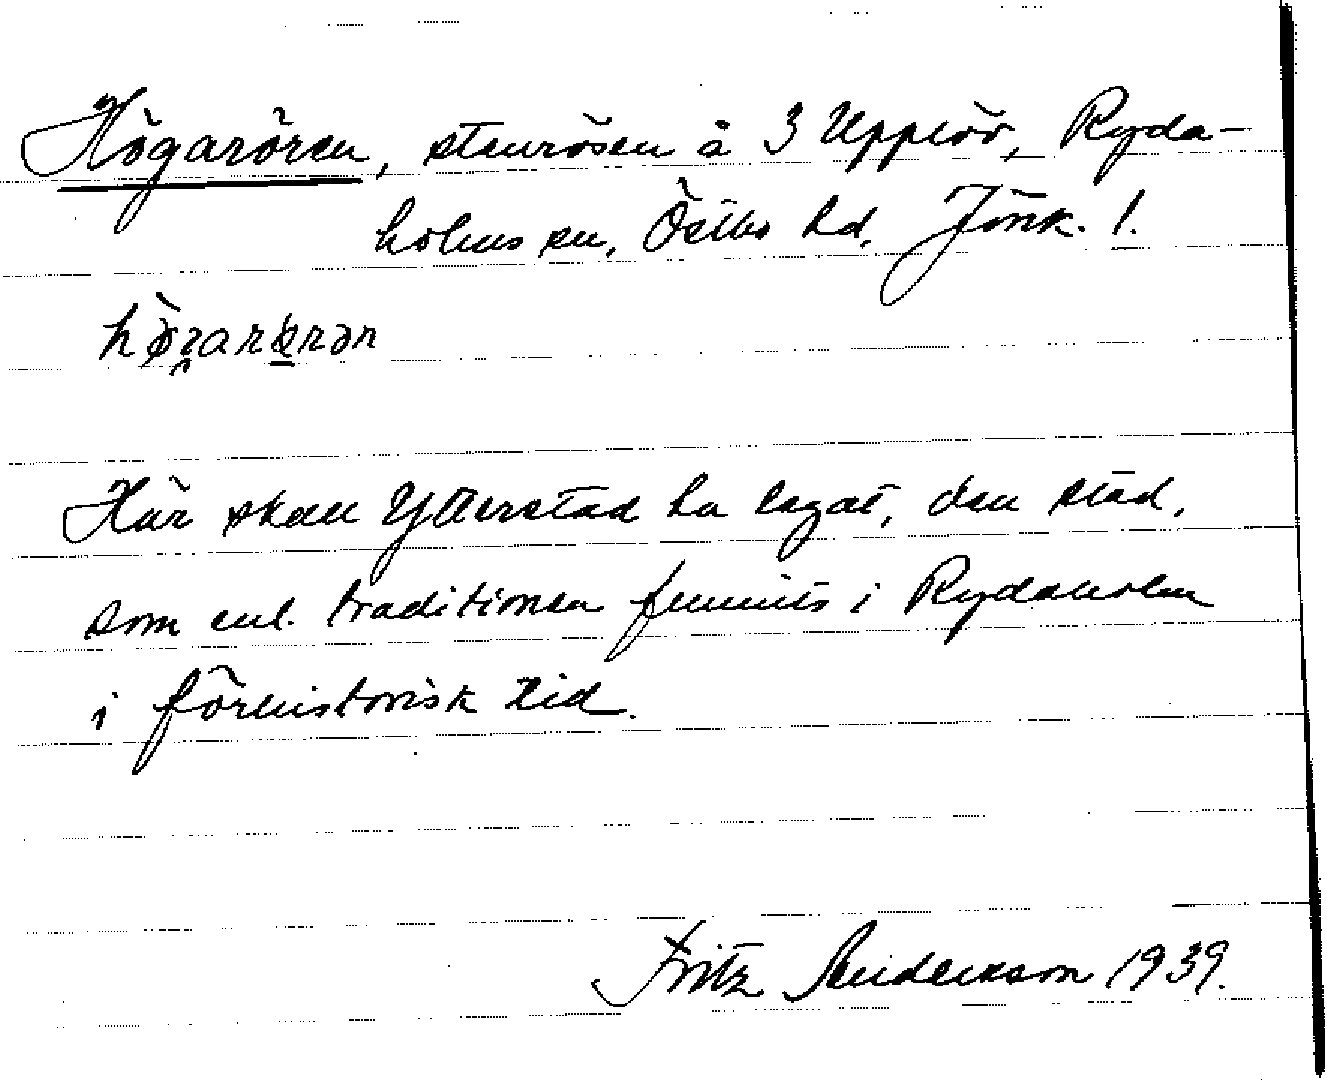 Högarören, stenrösen å 3 Upplöv, Ryda-
holms sn, Östbo hd, Jönk. l.
Här skall Ytterstad ha legat, den stad,
som enl. traditionen funnits i Rydaholm
i förhistorisk tid.
Fritz Anderkson 1939.